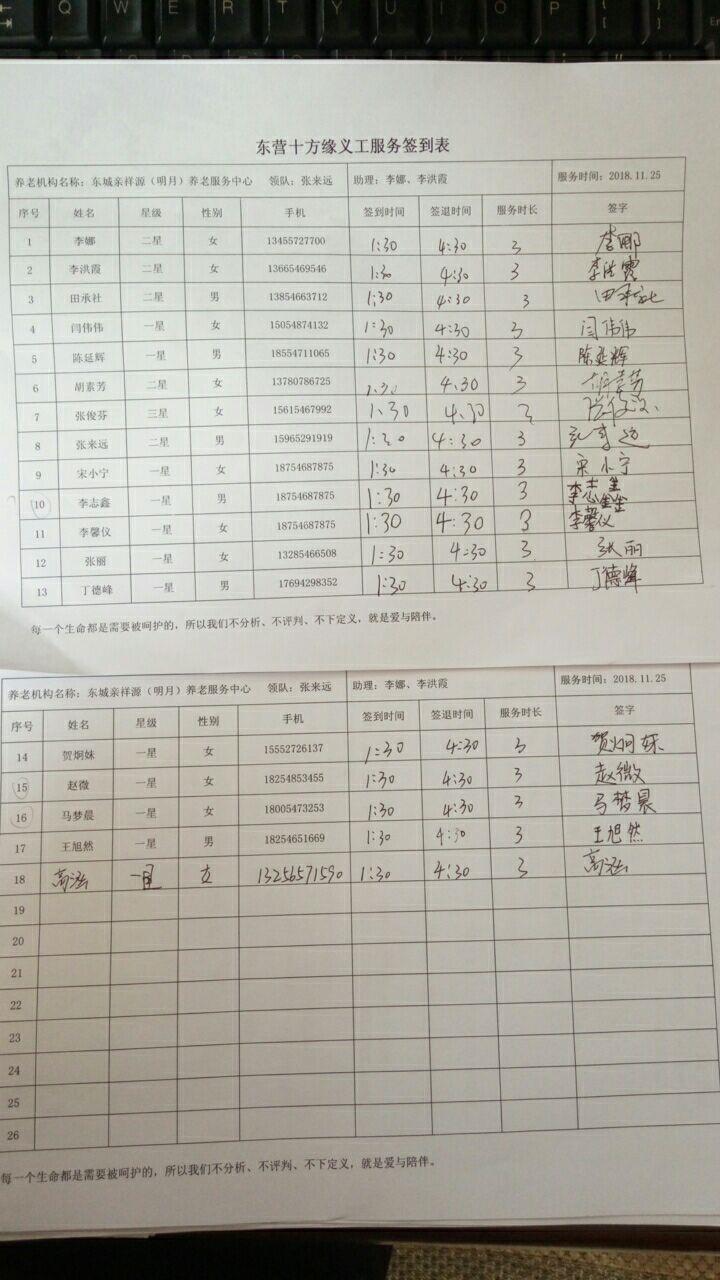 Q W E R T Y U I O P
东营十方缘义工服务签到表
养老机构名称：东城亲祥源（明月）养老服务中心 领队：张来远 助理：李娜、李洪霞 服务时间：2018.11.25
序号 姓名 星级 性别 手机 签到时间 签退时间 服务时长 签字
1 李娜 二星 女 13455727700 1:30 4:30 3 李娜
2 李洪霞 二星 女 13665469546 1:30 4:30 3 李洪霞
3 田承社 二星 男 13854663712 1:30 4:30 3 田承社
4 闫伟伟 一星 女 15054874132 1:30 4:30 3 闫伟伟
5 陈延辉 一星 男 18554711065 1:30 4:30 3 陈延辉
6 胡素芳 二星 女 13780786725 1:30 4:30 3 胡素芳
7 张俊芬 三星 女 15615467992 1:30 4:30 3
8 张来远 二星 男 15965291919 1:30 4:30 3 张来远
9 宋小宁 一星 女 18754687875 1:30 4:30 3 宋小宁
10 李志鑫 一星 男 18754687875 1:30 4:30 3 李志鑫
11 李馨仪 一星 女 18754687875 1:30 4:30 3 李馨仪
12 张丽 一星 女 13285466508 1:30 4:30 3 张丽
13 丁德峰 一星 男 17694298352 1:30 4:30 3 丁德峰
每一个生命都是需要被呵护的，所以我们不分析、不评判、不下定义，就是爱与陪伴。
养老机构名称：东城亲祥源（明月）养老服务中心 领队：张来远 助理：李娜、李洪霞 服务时间：2018.11.25
序号 姓名 星级 性别 手机 签到时间 签退时间 服务时长 签字
14 贺炯妹 一星 女 15552726137 1:30 4:30 3 贺炯妹
15 赵微 一星 女 18254853455 1:30 4:30 3 赵微
16 马梦晨 一星 女 18005473253 1:30 4:30 3 马梦晨
17 王旭然 一星 男 18254651669 1:30 4:30 3 王旭然
18 高泓 一星 女 13256571590 1:30 4:30 3 高泓
19
20
21
22
23
24
25
26
每一个生命都是需要被呵护的，所以我们不分析、不评判、不下定义，就是爱与陪伴。